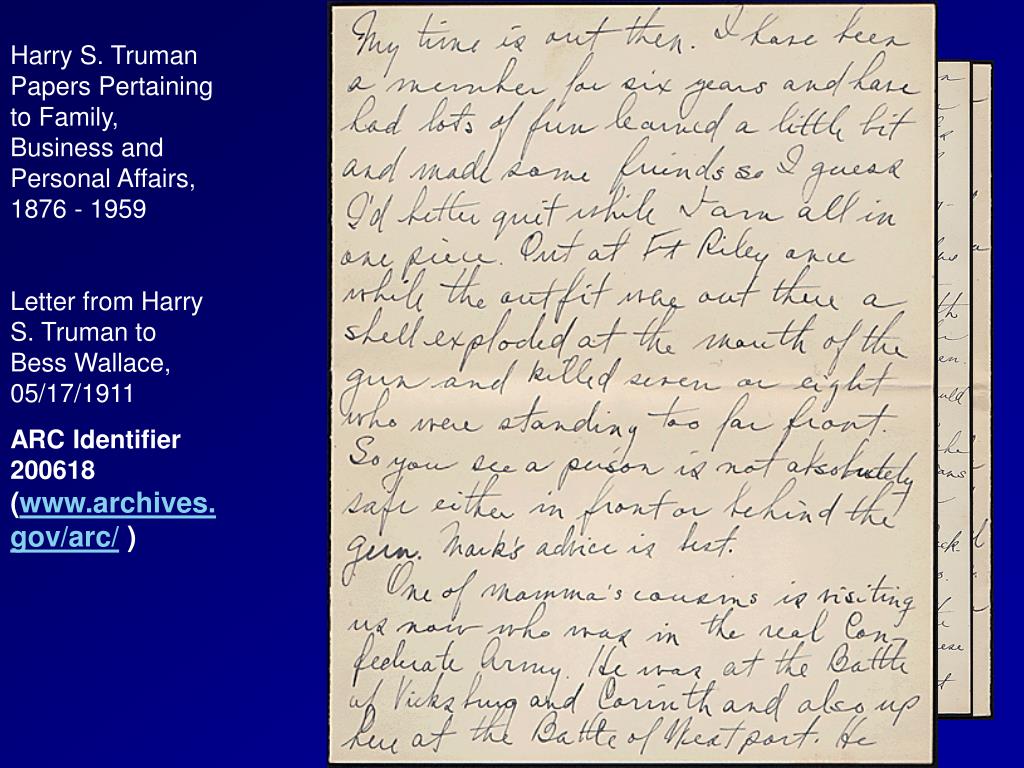 Harry S. Truman
Papers Pertaining
to Family,
Business and
Personal Affairs,
1876 - 1959
Letter from Harry
S. Truman to
Bess Wallace,
05/17/1911
ARC Identifier
200618
(www.archives.
gov/arc/ )
My time is out then. I have been
a member for six years and have
had lots of fun learned a little bit
and made some friends so I guess
I'd better quit while I am all in
one piece. Out at Ft Riley once
while the outfit was out there a
shell exploded at the mouth of the
gun and killed seven or eight
who were standing too far front.
So you see a person is not absolutely
safe either in front or behind the
gun. Mark's advice is best.
One of mamma's cousins is visiting
us now who was in the real Con-
federate Army. He was at the Battle
of Vicksburg and Corinth and also up
here at the Battle of Westport. He